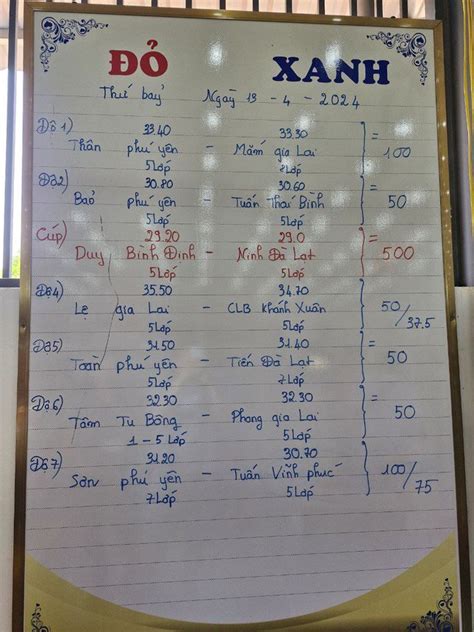 ĐỎ XANH
Thứ bảy Ngày 13 - 4 - 2024
Độ 1) 33.40 33.30
Thân phú yên - Mắm gia Lai = 100
5 Lớp 7 Lớp
Độ 2) 30.80 30.60
Bảo phú yên - Tuấn Thái Bình = 50
5 Lớp 5 Lớp
Cúp) 29.20 29.0
Duy Bình Định - Ninh Đà Lạt = 500
5 Lớp 5 Lớp
Độ 4) 35.50 34.70
Lẹ gia Lai - CLB Khánh Xuân 50/37.5
5 Lớp 5 Lớp
Độ 5) 31.50 31.40
Toàn phú yên - Tiến Đà Lạt = 50
5 Lớp 7 Lớp
Độ 6) 32.30 32.30
Tâm Tu Bông - Phong gia Lai = 50
1 - 5 Lớp 5 Lớp
Độ 7) 31.20 30.70
Sơn phú yên - Tuấn Vĩnh phúc 100/75
7 Lớp 5 Lớp